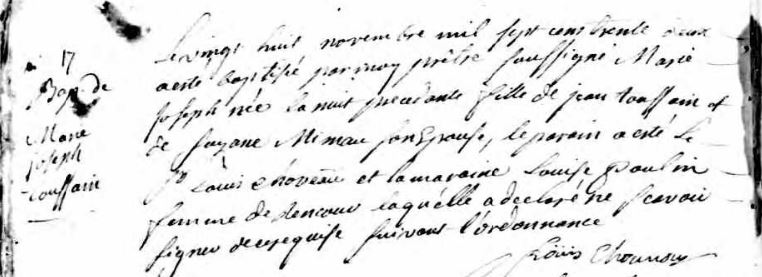 17
Bap. de
Marie
Joseph
toussain
Le vingt huit novembre mil sept cens trente deux
a esté baptisé par moy prêtre soussigné Marie
joseph née la nuit precedante fille de jean toussain et
de suzane Mimau son Epouse, le parain a esté Le
Sr Loüis Choveau et la maraine Louise Poulin
femme de laquélle a declaré ne scavoir
signer de ce requise suivant l'ordonnance
Loüis